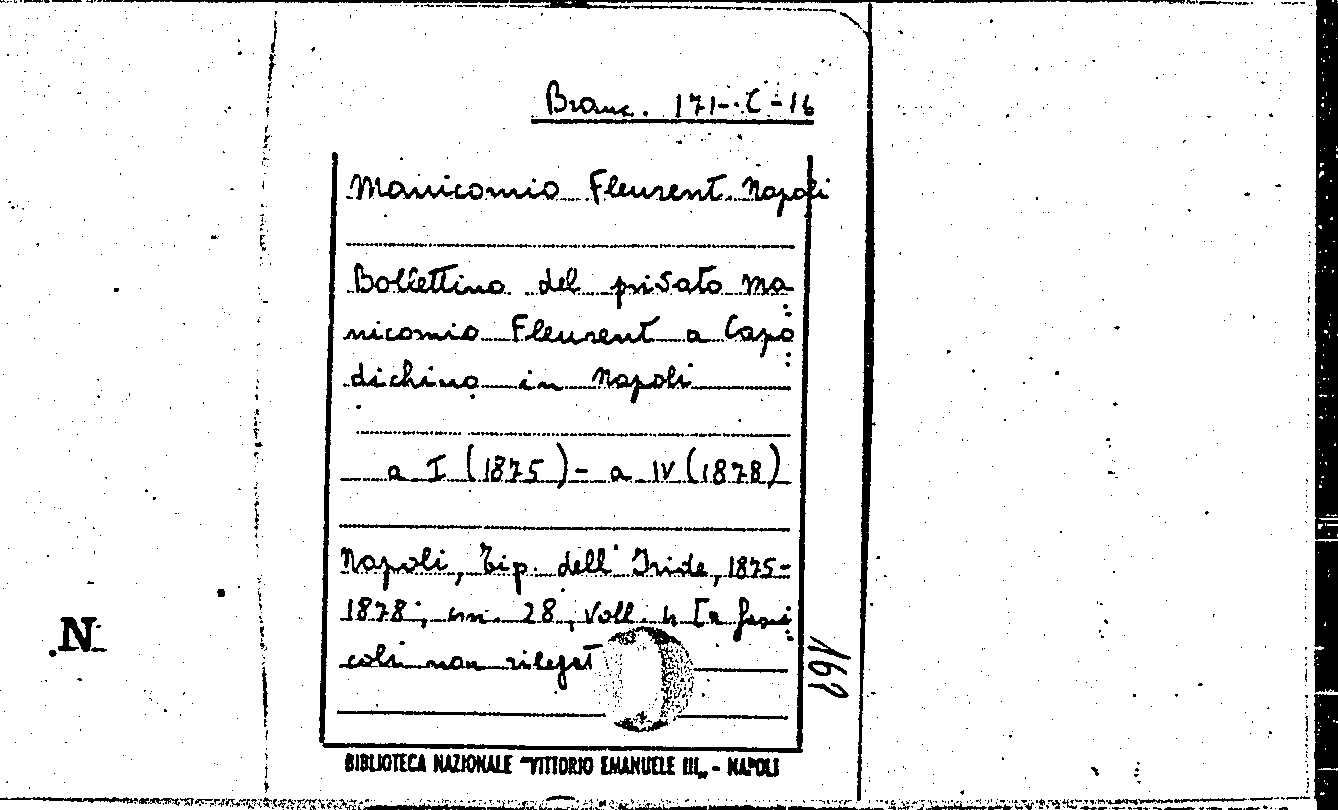 Branc. 171-C-16
Manicomio Fleurent. Napoli
Bollettino del privato ma
nicomio Fleurent a Capo
dichino in Napoli
a I (1875) - a IV (1878)
Napoli, Tip. dell'Iride, 1875-
1878; cm. 28, voll. 4 [a fasci
coli non rilegat
N
169
BIBLIOTECA NAZIONALE "VITTORIO EMANUELE III„ - NAPOLI